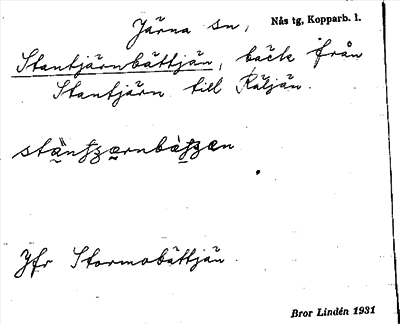 Järna sn, Nås tg, Kopparb. l.
Stantjärnbättjän, bäck från
Stantjärn till Räljän.
Jfr Stormobättjän.
Bror Lindén 1931